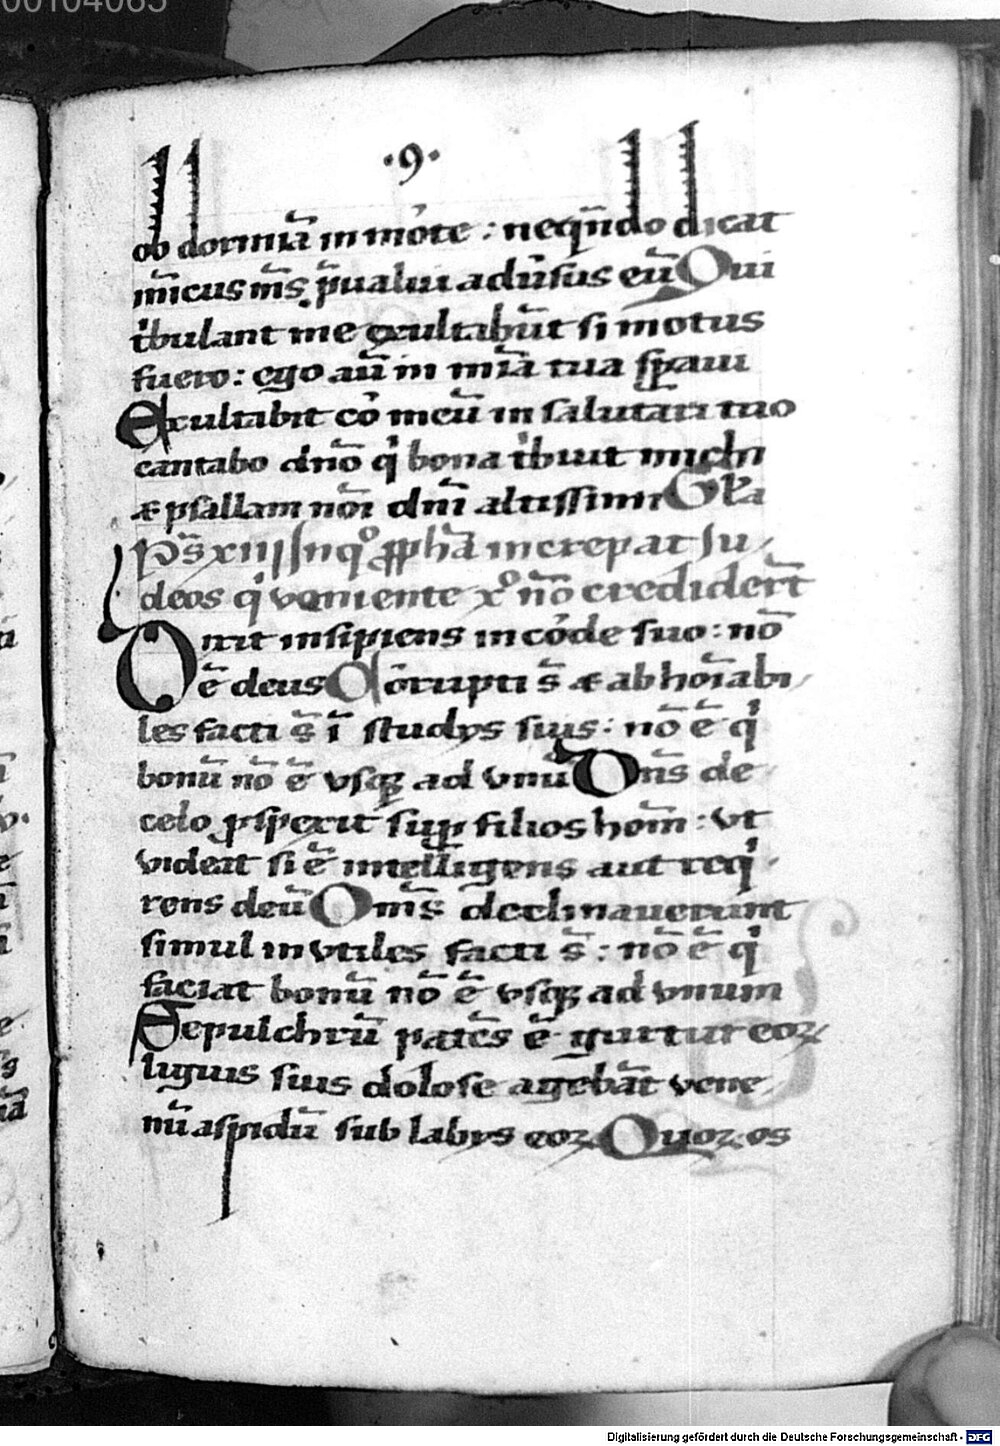 00104065
·9·
ob dormiā in mo᷑te : neqn̄do dicat
īmicus ms̄ p̄ualui adūsus eū Qui
tͥbulant me exultabūt si motus
fuero : ego aū in mīa tua sp̄aui
Exultabit co᷑ meū in salutari tuo
cantabo dn̄o qͥ bona tͥbuit michi
⁊ psallam no᷑i dn̄i altissimi Gla
ps̄ xiij Inqͦ ꝓpha increpat Iu
deos qͥ veniente xͦ nō crediderūt
Dixit insipiens in co᷑de suo : nō
ē deus Co᷑rupti s̄ ⁊ abhoīabi
les facti s̄ ī studijs suis : nō ē qͥ
bonū nō ē vsqꝫ ad vnū Dn̄s de
celo ꝓspexit suꝑ filios hom̄ : vt
videat si ē intelligens aut reqͥ
rens deū Om̄s declinauerunt
simul inutiles facti s̄ : nō ē qͥ
faciat bonū nō ē vsqꝫ ad vnum
Sepulchrū patēs ē guttur eoꝝ
liguis suis dolose agebāt vene
nū aspidū sub labijs eoꝝ Quoꝝ os
Digitalisierung gefördert durch die Deutsche Forschungsgemeinschaft - DFG